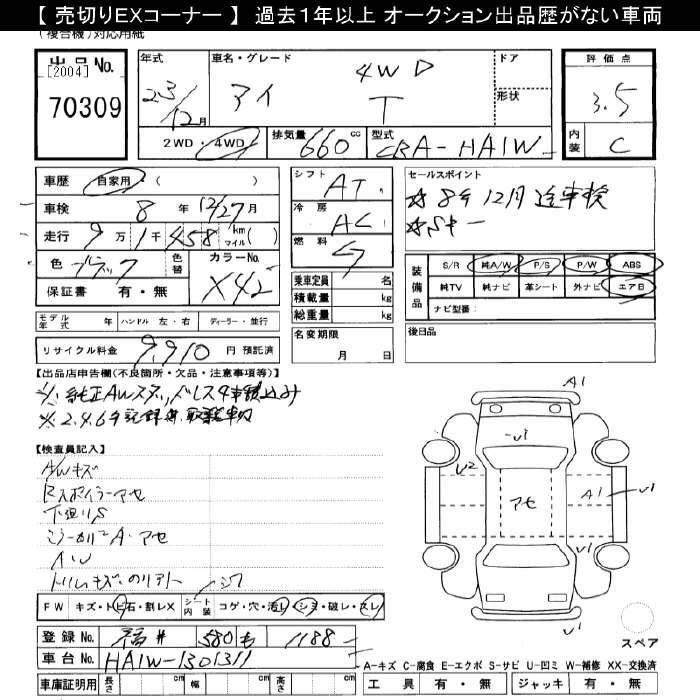 【 売切りEXコーナー 】 過去1年以上 オークション出品歴がない車両
(複合機)対応用紙
出品No.
[2004]
70309
年式 23/12月
車名・グレード アイ 4WD T
ドア
形状
2WD・4WD
排気量 660 cc
型式 CBA-HA1W
評価点 3.5
内装 C
車歴 自家用・( )
車検 8年 12/27月
走行 9万1千458 km マイル( )
色 ブラック
色替
カラーNo. X42
保証書 有・無
モデル年式 年 ハンドル 左・右 ディーラー・並行
リサイクル料金 9,910 円 預託済
シフト AT
冷房 AC
燃料 G
乗車定員 名
積載量 kg
総重量 kg
名変期限 月 日
セールスポイント
☆ 8年12月迄車検
☆ Sキー
装備品
S/R 純A/W P/S P/W ABS
純TV 純ナビ 革シート 外ナビ エアB
ナビ型番:
後日品
【出品店申告欄(不良箇所・欠品・注意事項等)】
※ 純正AWスタッドレス4本積込み
※ 2.4.6年記録簿.取説車内
【検査員記入】
AWキズ
Rスポイラーアセ
下廻りS
A・アセ
A・U
シワ
FW キズ・トビ石・割レX
シート内装 コゲ・穴・汚レ・シミ・破レ・スレ
登録No. 福井 580 も 1188
車台No. HA1W-1301311
車庫証明用 長さ cm 幅 cm 高さ cm
A1
U1
U2
アセ
A1
U1
U1
スペア
A-キズ C-腐食 E-エクボ S-サビ U-凹ミ W-補修 XX-交換済
工具 有・無 ジャッキ 有・無